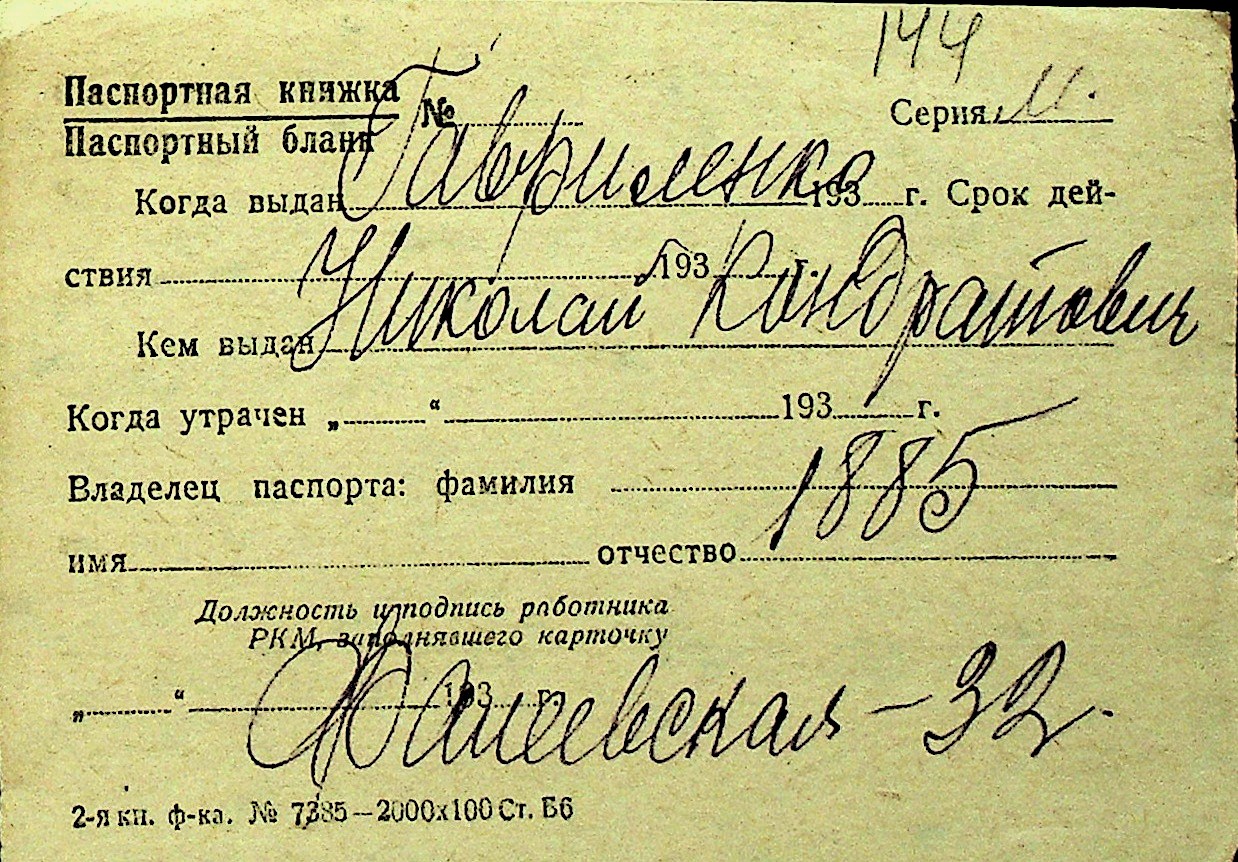 144
Паспортная книжка № Серия М.
Паспортный бланк
Гавриленко
Когда выдан 193 г. Срок дей-
ствия 193 г.
Николай Кондратович
Кем выдан
Когда утрачен „ “ 193 г.
1885
Владелец паспорта: фамилия
имя отчество
Должность и подпись работника
РКМ, заполнявшего карточку
„ “ 193 г.
- 32.
2-я кн. ф-ка. № 7385—2000х100 Ст. Б6